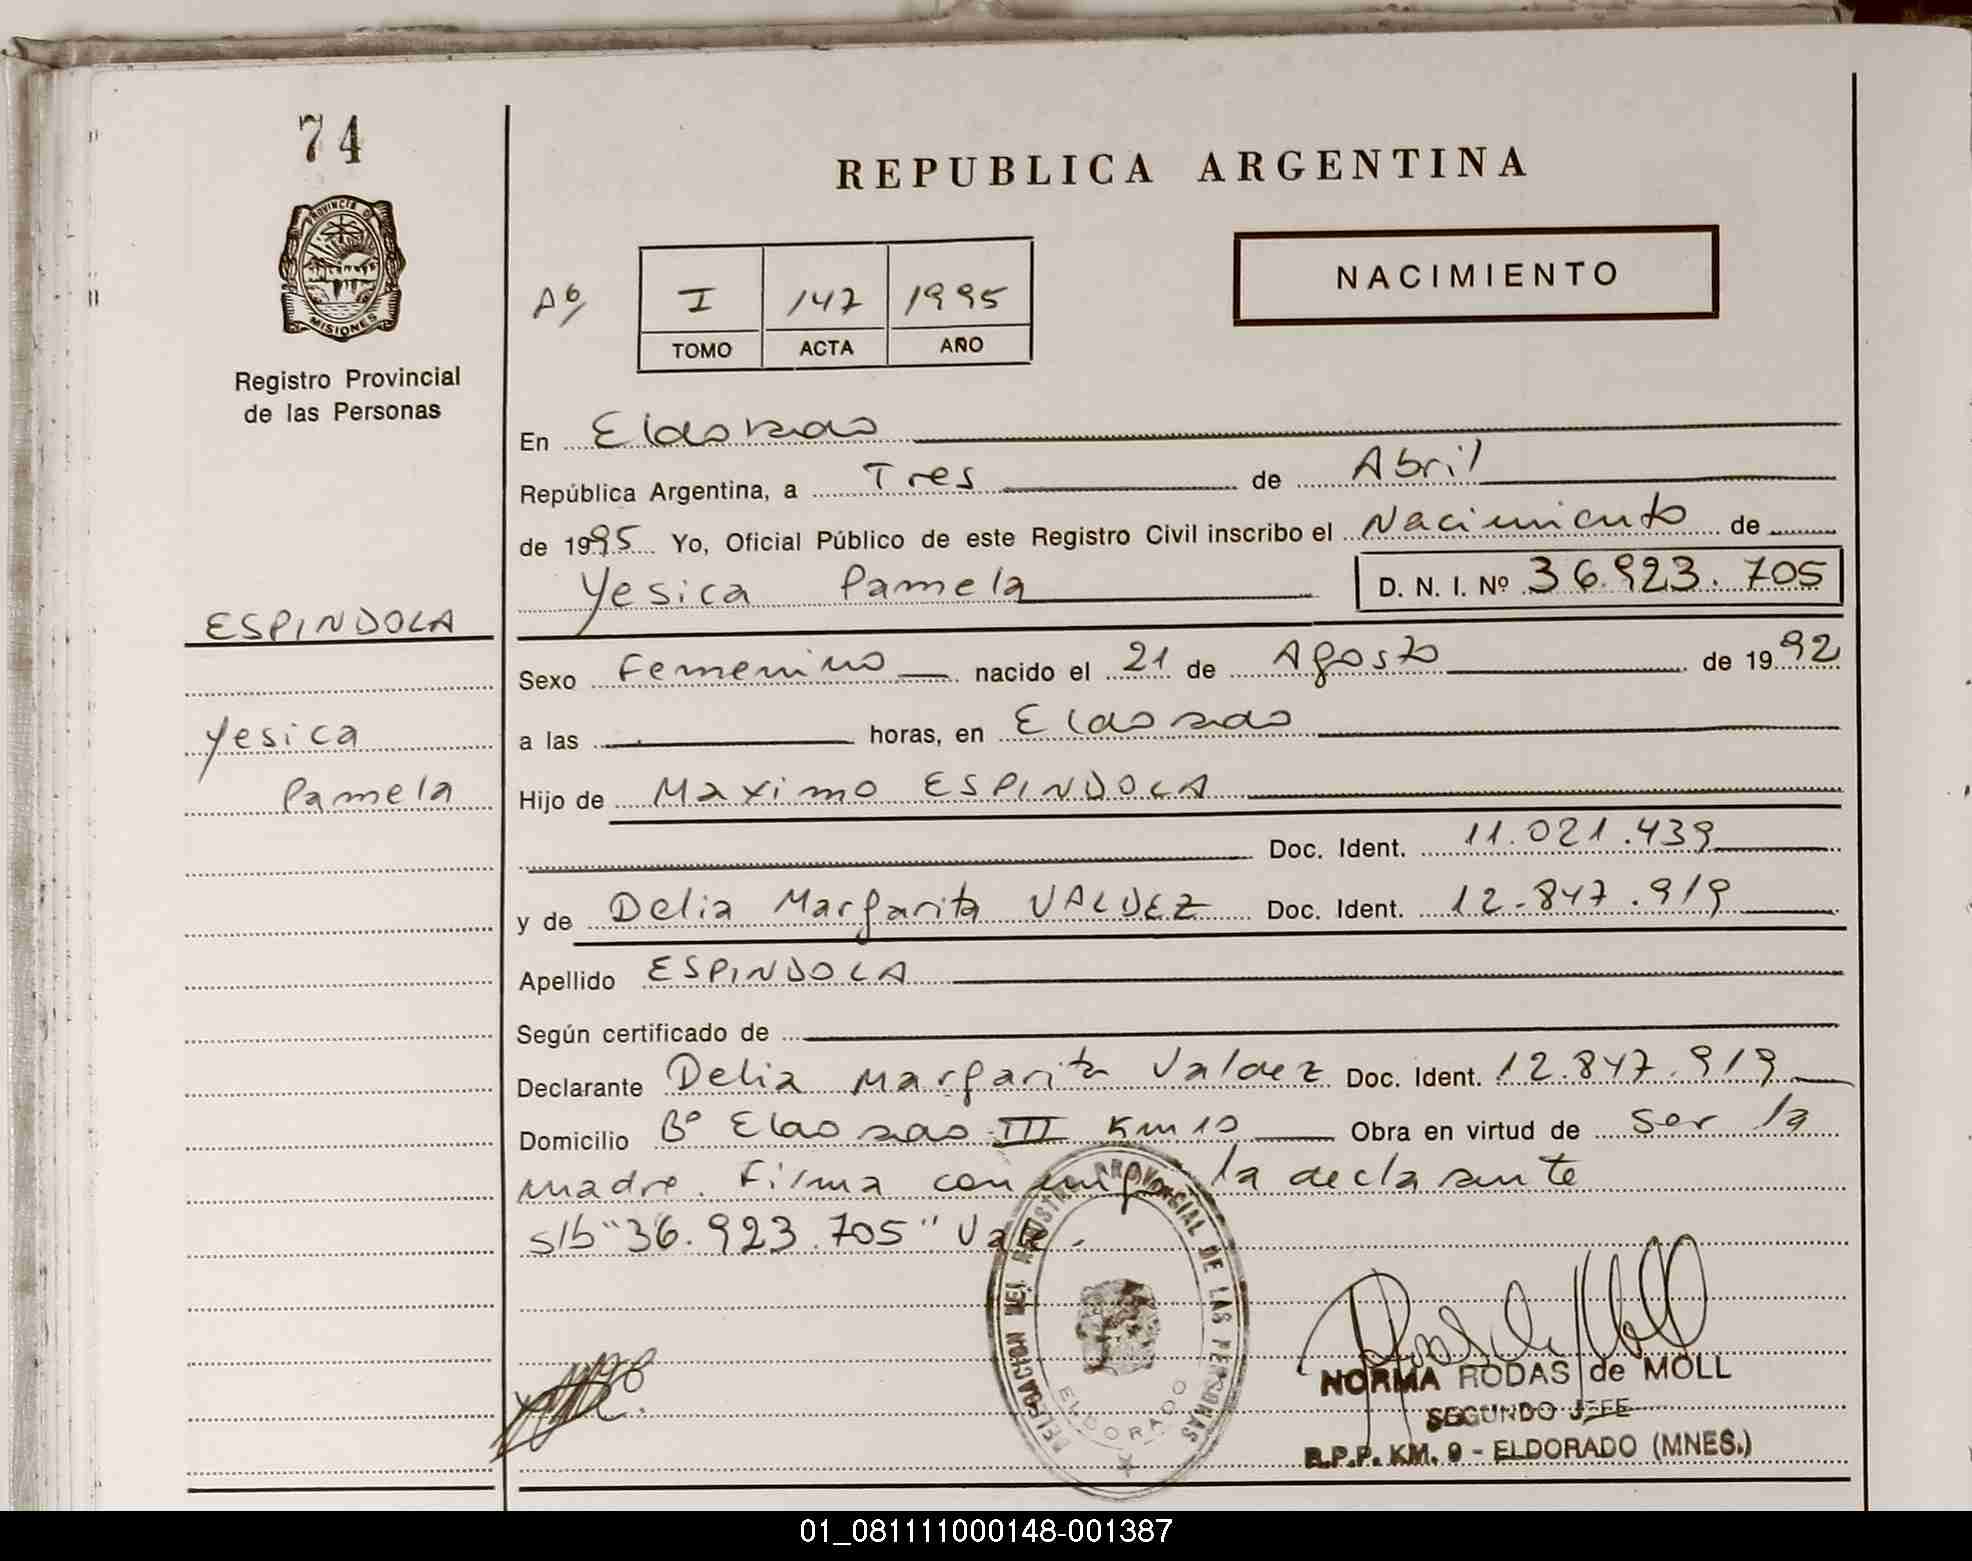 74
PROVINCIA DE
MISIONES
Registro Provincial
de las Personas
ESPINDOLA
Yesica
Pamela
REPUBLICA ARGENTINA
NACIMIENTO
I 147 1995
TOMO ACTA AÑO
En Eldorado
República Argentina, a Tres de Abril
de 1995 Yo, Oficial Público de este Registro Civil inscribo el Nacimiento de
Yesica Pamela D. N. I. Nº 36.923.705
Sexo Femenino nacido el 21 de Agosto de 1992
a las horas, en Eldorado
Hijo de Maximo ESPINDOLA
Doc. Ident. 11.021.439
y de Delia Margarita VALDEZ Doc. Ident. 12.847.919
Apellido ESPINDOLA
Según certificado de
Declarante Delia Margarita Valdez Doc. Ident. 12.847.919
Domicilio Bº Eldorado III Km 10 Obra en virtud de ser la
madre. Firma conmigo la declarante
s/b "36.923.705" Vale.
DELEGACION DEL REGISTRO PROVINCIAL DE LAS PERSONAS
ELDORADO
NORMA RODAS de MOLL
SEGUNDO JEFE
R.P.P. KM. 9 - ELDORADO (MNES.)
01_081111000148-001387